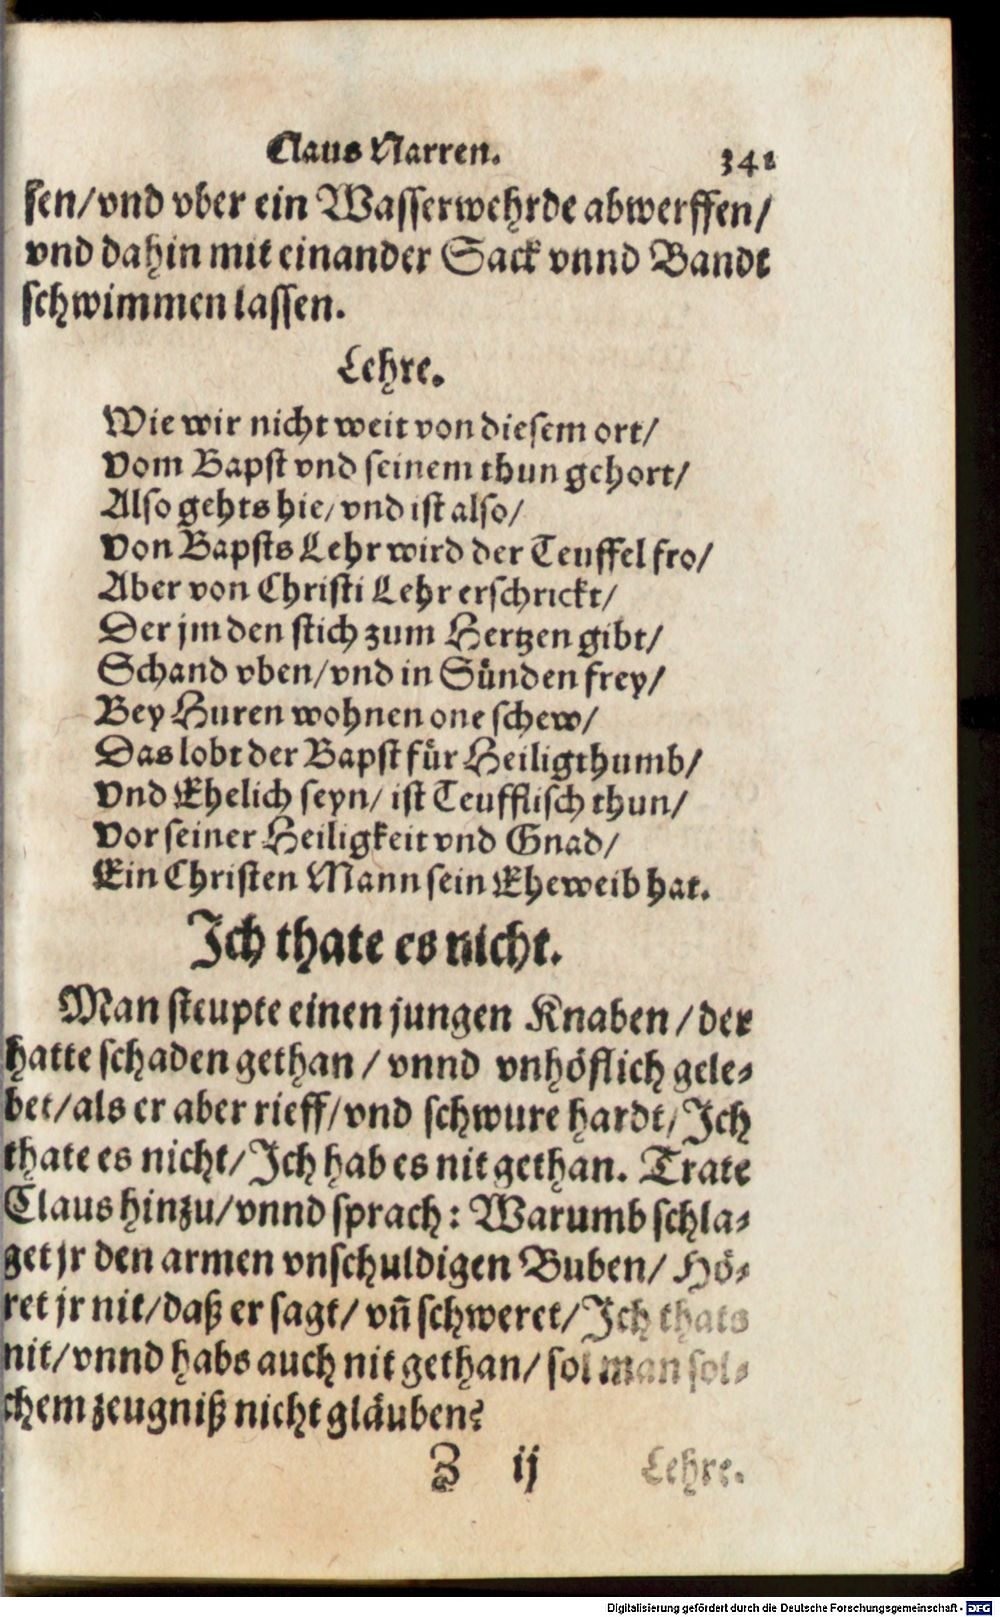 Claus Narren. 341
sen/vnd vber ein Wasserwehrde abwerffen/
vnd dahin mit einander Sack vnnd Bandt
schwimmen lassen.
Lehre.
Wie wir nicht weit von diesem ort/
Vom Bapst vnd seinem thun gehort/
Also gehts hie/vnd ist also/
Von Bapsts Lehr wird der Teuffel fro/
Aber von Christi Lehr erschrickt/
Der jm den stich zum Hertzen gibt/
Schand vben/vnd in Sünden frey/
Bey Huren wohnen one schew/
Das lobt der Bapst für Heiligthumb/
Vnd Ehelich seyn/ ist Teufflisch thun/
Vor seiner Heiligkeit vnd Gnad/
Ein Christen Mann sein Eheweib hat.
Ich thate es nicht.
Man steupte einen jungen Knaben/der
hatte schaden gethan/ vnnd vnhöflich gele⸗
bet/als er aber rieff/vnd schwure hardt/Ich
thate es nicht/Ich hab es nit gethan. Trate
Claus hinzu/vnnd sprach: Warumb schla⸗
get jr den armen vnschuldigen Buben/ Hö⸗
ret jr nit/daß er sagt/ vñ schweret/Ich thats
nit/vnnd habs auch nit gethan/ sol man sol⸗
chem zeugniß nicht gläuben?
Z ij Lehre.
Digitalisierung gefördert durch die Deutsche Forschungsgemeinschaft - DFG